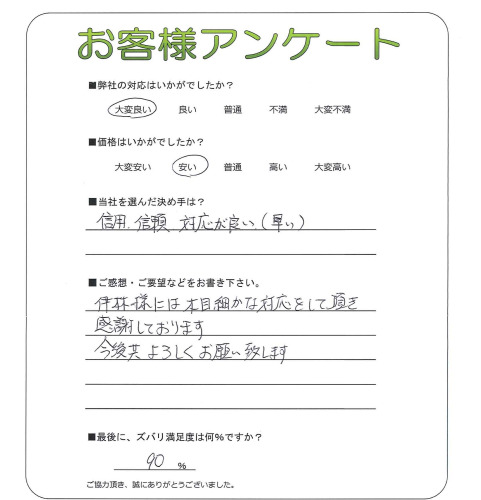 お客様アンケート
■弊社の対応はいかがでしたか？
大変良い 良い 普通 不満 大変不満
■価格はいかがでしたか？
大変安い 安い 普通 高い 大変高い
■当社を選んだ決め手は？
信用、信頼 対応が良い（早い）
■ご感想・ご要望などをお書き下さい。
伊林様には木目細かな対応をして頂き
感謝しております
今後共よろしくお願い致します
■最後に、ズバリ満足度は何％ですか？
90 ％
ご協力頂き、誠にありがとうございました。